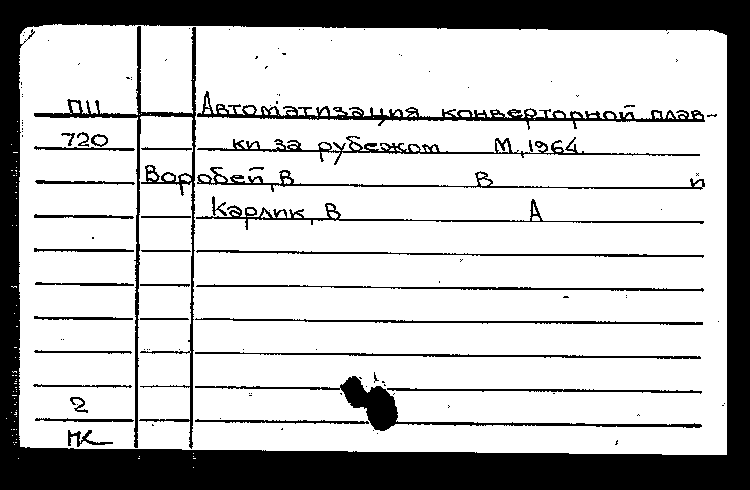 П11 Автоматизация конверторной плав-
720 ки за рубежом. М., 1964.
Воробей, В В и
Карлик, В А
2
НК